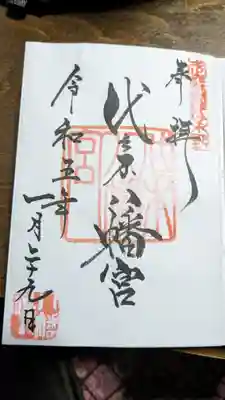 奉拝
代々木八幡宮
令和五年
一月二十九日